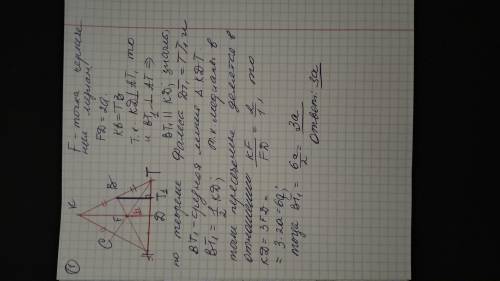 ①
K
C
B
F
A
D
T₁
T
F - точка пересече-
ния медиан;
FD = 2a;
KB = TB
т.к. KD ⊥ AT, то
и BT₁ ⊥ AT ⇒
BT₁ || KD, значит,
по теореме Фалеса DT₁ = TT₁ и
BT₁ - средняя линия Δ KDT
BT₁ = 1/2 KD; т.к. медианы в
точке пересечения делятся в
отношении KF/FD = 2/1, то
KD = 3FD =
= 3·2a = 6a;
тогда BT₁ = 6a/2 = 3a
Ответ: 3a